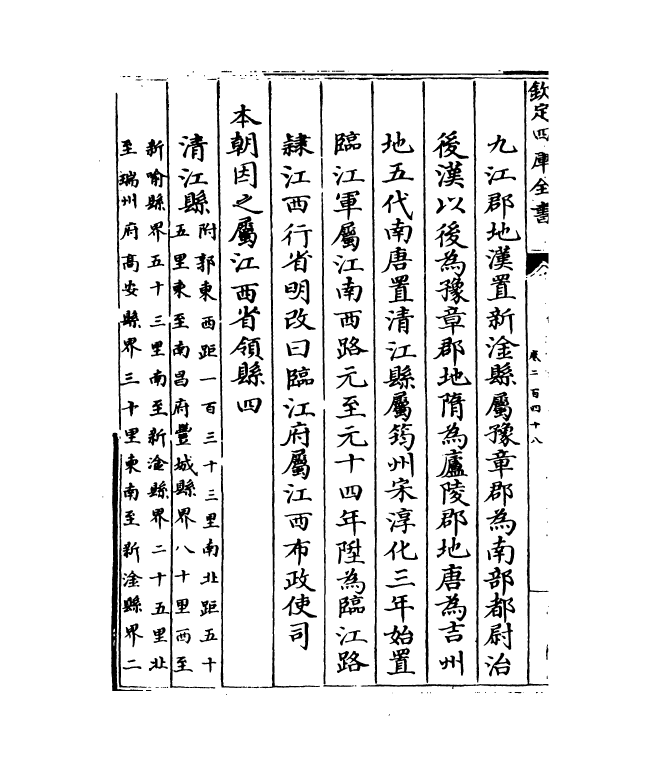 欽定四庫全書
卷二百四十八
九江郡地漢置新淦縣屬豫章郡為南部都尉治
後漢以後為豫章郡地隋為廬陵郡地唐為吉州
地五代南唐置清江縣屬筠州宋淳化三年始置
臨江軍屬江南西路元至元十四年陞為臨江路
隸江西行省明改曰臨江府屬江西布政使司
本朝因之屬江西省領縣四
清江縣附郭東西距一百三十三里南北距五十
五里東至南昌府豐城縣界八十里西至
新喻縣界五十三里南至新淦縣界二十五里北
至瑞州府高安縣界三十里東南至新淦縣界二